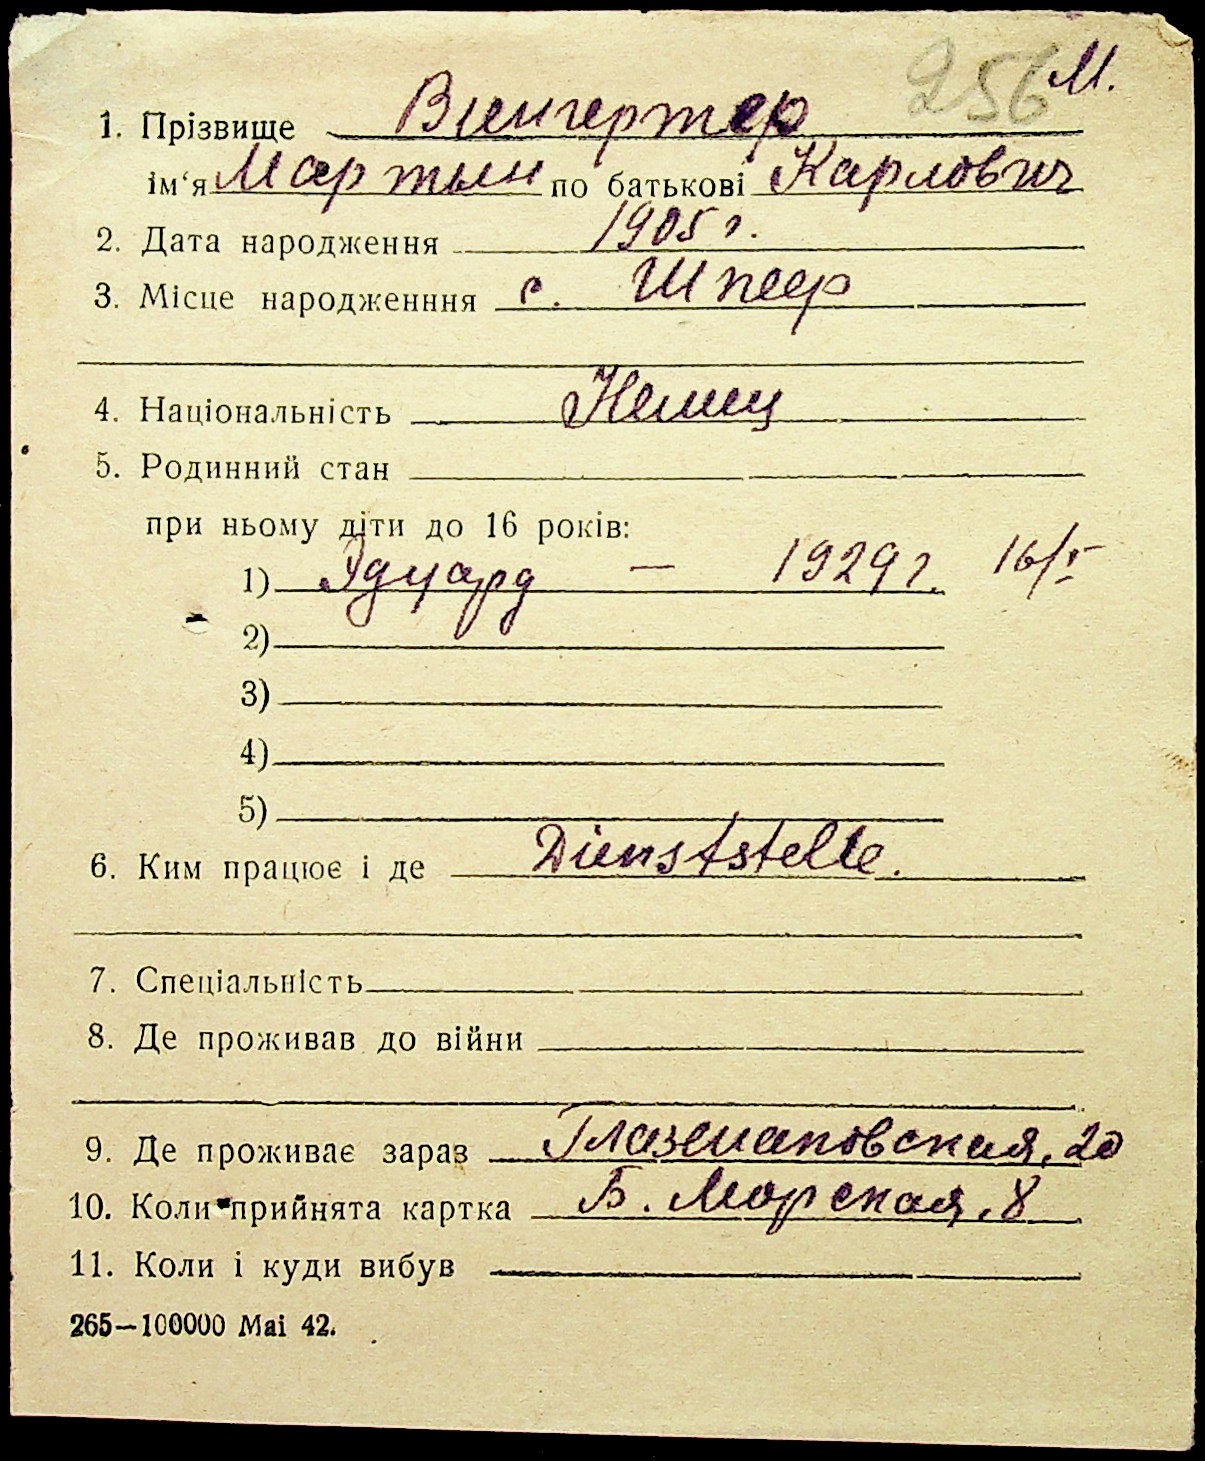 256 М.
1. Прізвище Вингертер
ім‘я Мартын по батькові Карлович
2. Дата народження 1905 г.
3. Місце народженння с. Шпеер
4. Національність Немец
5. Родинний стан
при ньому діти до 16 років:
1) Эдуард — 1929 г. 16/V
2)
3)
4)
5)
6. Ким працює і де Dienststelle.
7. Спеціальність
8. Де проживав до війни
9. Де проживає зараз Глазенаповская, 20
10. Коли прийнята картка Б. Морская, 8
11. Коли і куди вибув
265—100000 Mai 42.